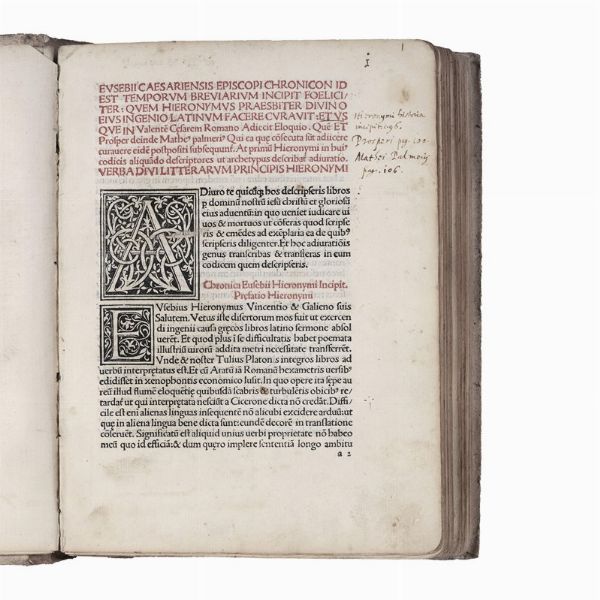 1
I
EVSEBII CAESARIENSIS EPISCOPI CHRONICON ID
EST TEMPORVM BREVIARIVM INCIPIT FOELICI/
TER: QVEM HIERONYMVS PRAESBITER DIVINO
EIVS INGENIO LATINVM FACERE CVRAVIT: ET VS
QVE IN Valentē Cesarem Romano Adiicit Eloquio. Quē ET
Prosper deinde Matheᵒ palmeriᵒ Qui ea que cōsecuta sūt adiicere
curauere eidē postpositi subsequunt. At primū Hieronymi in hui'
codicis aliquādo descriptores ut archetypus describat adiuratio.
VERBA DIVI LITTERARVM PRINCIPIS HIERONYMI
Hieronymi historia
Prosperi pg.
Mathei Palmerij
pag. 106.
ADiuro te quicūq; hos descripseris libros
p dominū nostrū iesū christū et gloriosū
eius aduentū: in quo ueniet iudicare ui
uos & mortuos ut cōferas quod scripse
ris & emēdes ad exēplaria ea de quibᵒ
scripseris diligenter. Et hoc adiuratiōis
genus transcribas & transferas in eum
codicem quem descripseris.
Chronica Eusebii Hieronymi Incipit.
Prefatio Hieronymi
EVsebius Hieronymus Vincentio & Galieno suis
Salutem. Vetus iste disertorum mos fuit ut exercen
di ingenii causa gręcos libros latino sermone absol
uerēt. Et quod plus ī se difficultatis habet poemata
illustriū uirorū addita metri necessitate transferrēt.
Vnde & noster Tulius Platonis integros libros ad
uerbū interpretatus est. Et cū Aratū iā Romanū hexametris uersibᵒ
edidisset in xenophontis economico lusit. In quo opere ita sepe au
reū illud flumē eloquētię quibusdā scabris & turbulētis obicibᵒ re/
tardat̃ ut qui interpretata nesciūt a Cicerone dicta nō credāt. Diffi/
cile est eni alienas linguas insequentē nō alicubi excidere arduū: ut
quę in aliena lingua bene dicta sunt: eundē decorē in translatione
cōseruēt. Significatū est aliquid unius uerbi proprietate nō habeo
meū quo id efficiā: & dum quęro implere sententiā longo ambitu
a 2